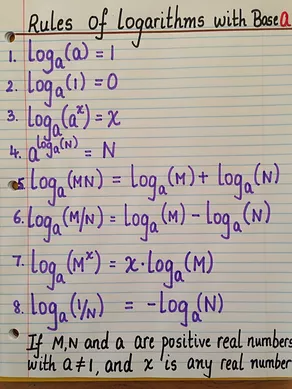 Rules of logarithms with Base a
1. logₐ(a) = 1
2. logₐ(1) = 0
3. logₐ(aˣ) = x
4. a^logₐ(N) = N
5. logₐ(MN) = logₐ(M) + logₐ(N)
6. logₐ(M/N) = logₐ(M) - logₐ(N)
7. logₐ(Mˣ) = x·logₐ(M)
8. logₐ(1/N) = -logₐ(N)
If M,N and a are positive real numbers
with a≠1, and x is any real number